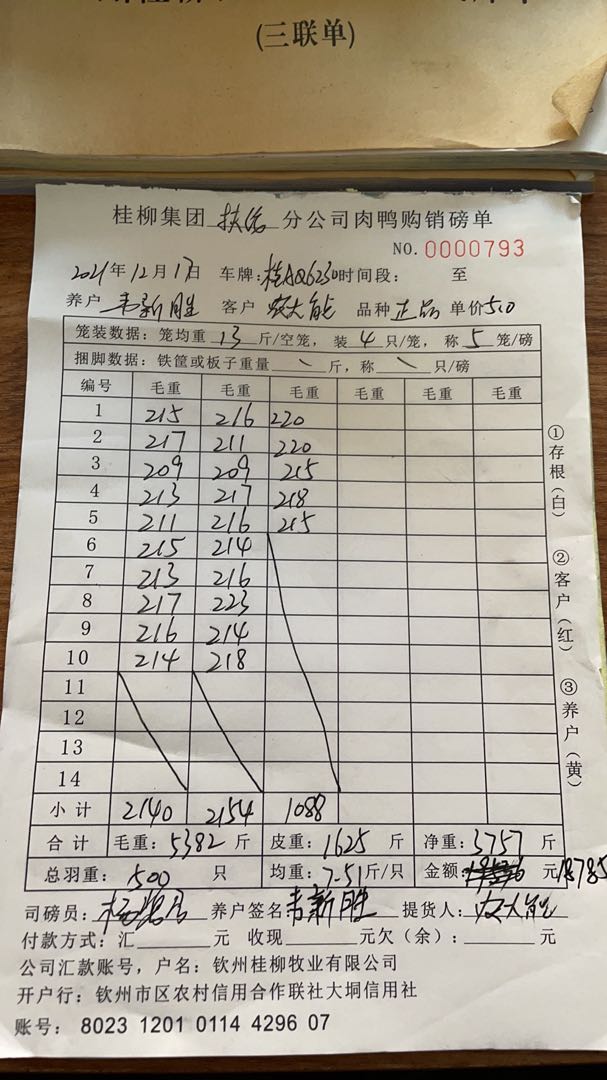 (三联单)
桂柳集团 扶绥 分公司肉鸭购销磅单
NO. 0000793
2021年12月17日 车牌:桂AQ6230时间段: 至
养户 韦新胜 客户 农大能 品种 正品 单价5.0
笼装数据: 笼均重 13 斤/空笼, 装 4 只/笼, 称 5 笼/磅
捆脚数据: 铁筐或板子重量 \ 斤, 称 \ 只/磅
编号 毛重 毛重 毛重 毛重 毛重 毛重
1 215 216 220
2 217 211 220
3 209 209 215
4 213 217 218
5 211 216 215
6 215 214
7 213 216
8 217 223
9 216 214
10 214 218
11
12
13
14
小计 2140 2154 1088
合计 毛重: 5382 斤 皮重: 1625 斤 净重: 3757 斤
总羽重: 500 只 均重: 7.51斤/只 金额: 元 18785
司磅员: 养户签名 韦新胜 提货人: 农大能
付款方式: 汇 元 收现 元欠(余): 元
公司汇款账号, 户名: 钦州桂柳牧业有限公司
开户行: 钦州市区农村信用合作联社大垌信用社
账号: 8023 1201 0114 4296 07
①存根(白)
②客户(红)
③养户(黄)